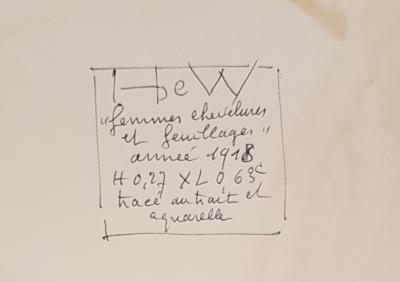 H de W
"femmes chevelures
et feuillages"
année 1918
H 0,27 X L 0 63c
tracé au trait et
aquarelle